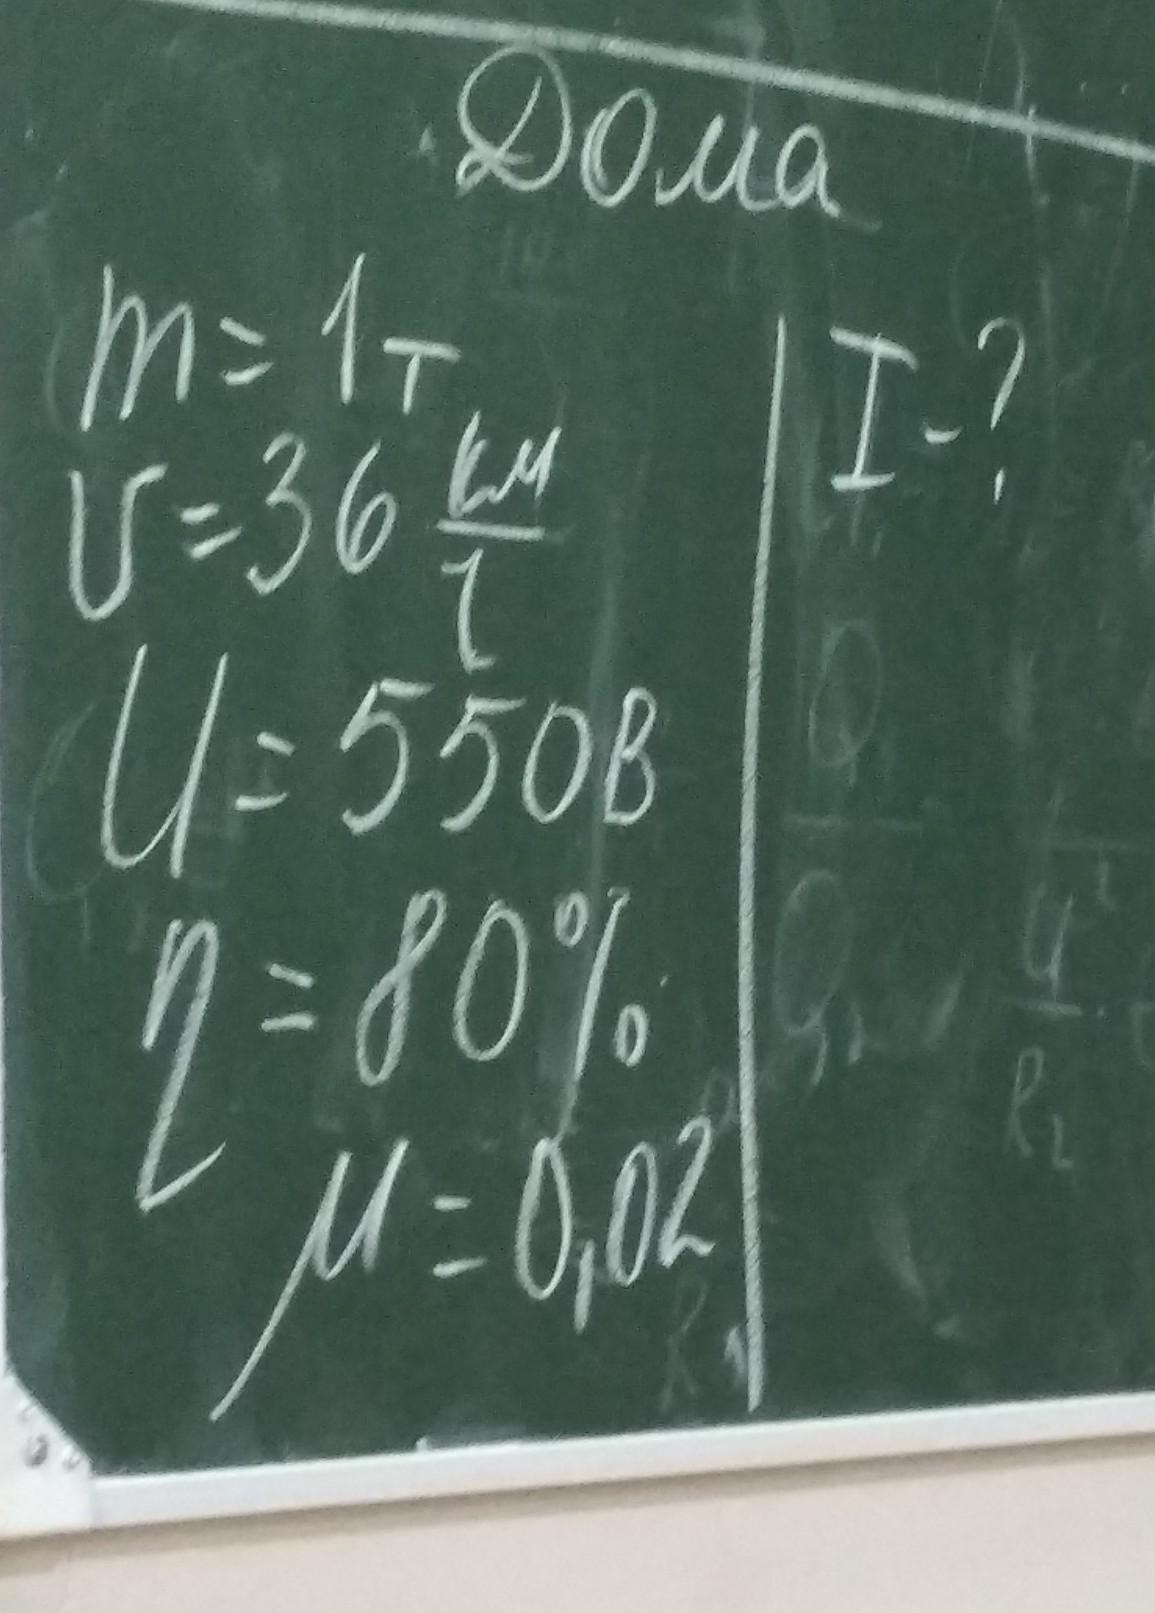 Дома
m = 1т
υ = 36 км/ч
U = 550В
η = 80%
μ = 0,02
I - ?